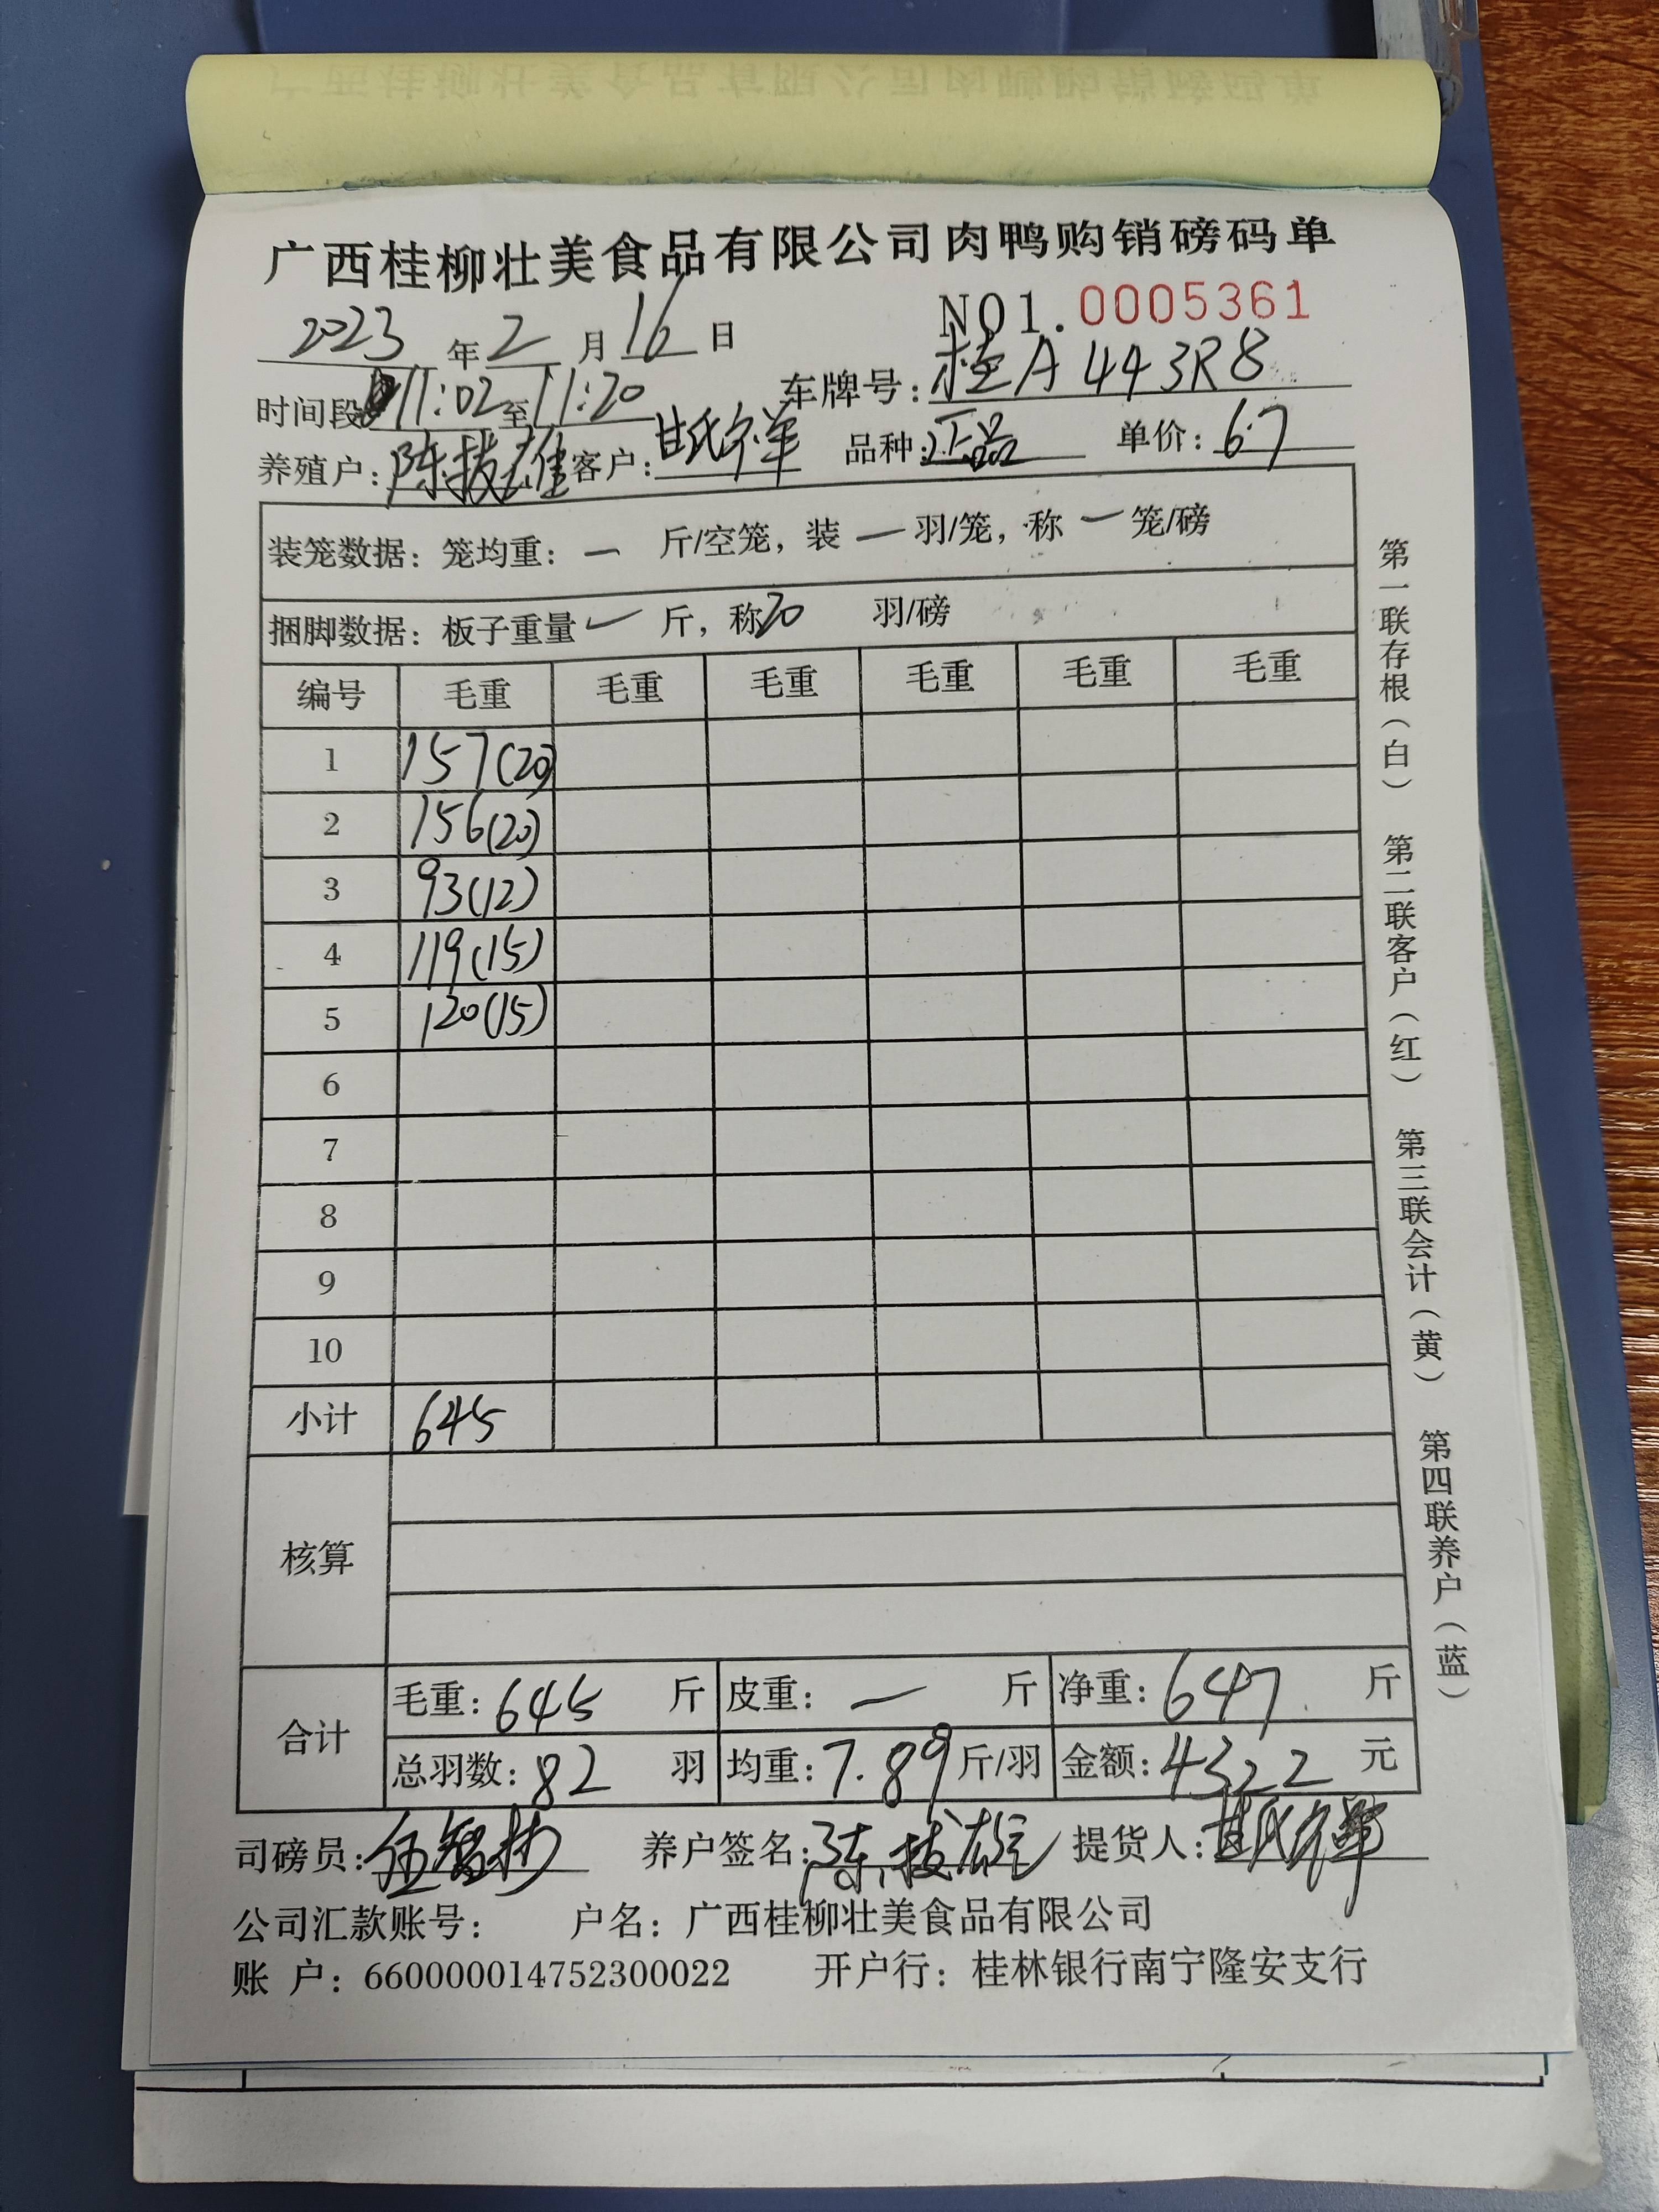 广西桂柳壮美食品有限公司肉鸭购销磅码单
NO1.0005361
2023年2月16日
时间段11:02至11:20 车牌号:桂A443R8
养殖户:陈拔雄 客户:甘氏 品种:正品 单价:6.7
装笼数据:笼均重:一 斤/空笼,装一羽/笼,称一笼/磅
捆脚数据:板子重量一斤,称20 羽/磅
编号 毛重 毛重 毛重 毛重 毛重 毛重
1 157(20)
2 156(20)
3 93(12)
4 119(15)
5 120(15)
6
7
8
9
10
小计 645
核算
合计 毛重:645 斤 皮重:一 斤 净重:647 斤
总羽数:82 羽 均重:7.89斤/羽 金额:4322 元
司磅员:伍智 养户签名:陈拔雄 提货人:甘氏
公司汇款账号: 户名:广西桂柳壮美食品有限公司
账 户:660000014752300022 开户行:桂林银行南宁隆安支行
第一联存根(白) 第二联客户(红) 第三联会计(黄) 第四联养户(蓝)